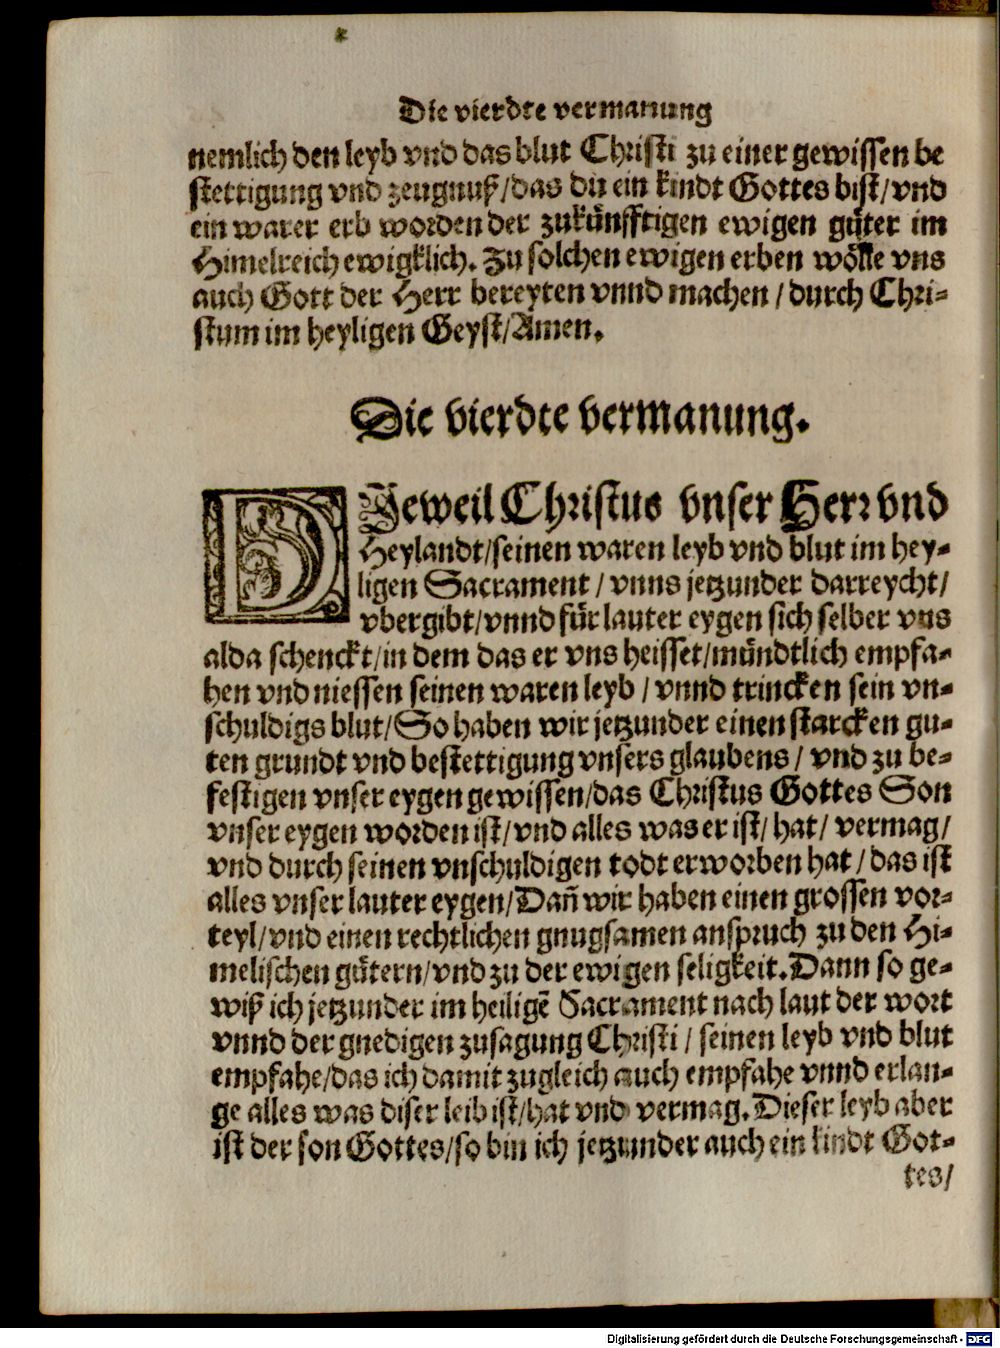 Die vierdte vermanung
nemlich den leyb vnd das blut Christi zu einer gewissen be
stettigung vnd zeugnuß/das du ein kindt Gottes bist/vnd
ein warer erb worden der zukünfftigen ewigen güter im
Himelreich ewigklich. Zu solchen ewigen erben wölle vns
auch Gott der Herr bereyten vnnd machen/durch Chri-
stum im heyligen Geyst/Amen.
Die vierdte vermanung.
DJeweil Christus vnser Herr vnd
Heylandt/seinen waren leyb vnd blut im hey-
ligen Sacrament/vnns jetzunder darreycht/
vbergibt/vnnd für lauter eygen sich selber vns
alda schenckt/in dem das er vns heisset/mündtlich empfa-
hen vnd niessen seinen waren leyb/vnnd trincken sein vn-
schuldigs blut/So haben wir jetzunder einen starcken gu-
ten grundt vnd bestettigung vnsers glaubens/vnd zu be-
festigen vnser eygen gewissen/das Christus Gottes Son
vnser eygen worden ist/vnd alles was er ist/hat/vermag/
vnd durch seinen vnschuldigen todt erworben hat/das ist
alles vnser lauter eygen/Dañ wir haben einen grossen vor-
teyl/vnd einen rechtlichen gnugsamen anspruch zu den Hi-
melischen gütern/vnd zu der ewigen seligkeit. Dann so ge-
wiß ich jetzunder im heiligẽ Sacrament nach laut der wort
vnnd der gnedigen zusagung Christi/seinen leyb vnd blut
empfahe/das ich damit zugleich auch empfahe vnnd erlan-
ge alles was diser leib ist/hat vnd vermag. Dieser leyb aber
ist der son Gottes/so bin ich jetzunder auch ein kindt Got-
tes/
Digitalisierung gefördert durch die Deutsche Forschungsgemeinschaft - DFG